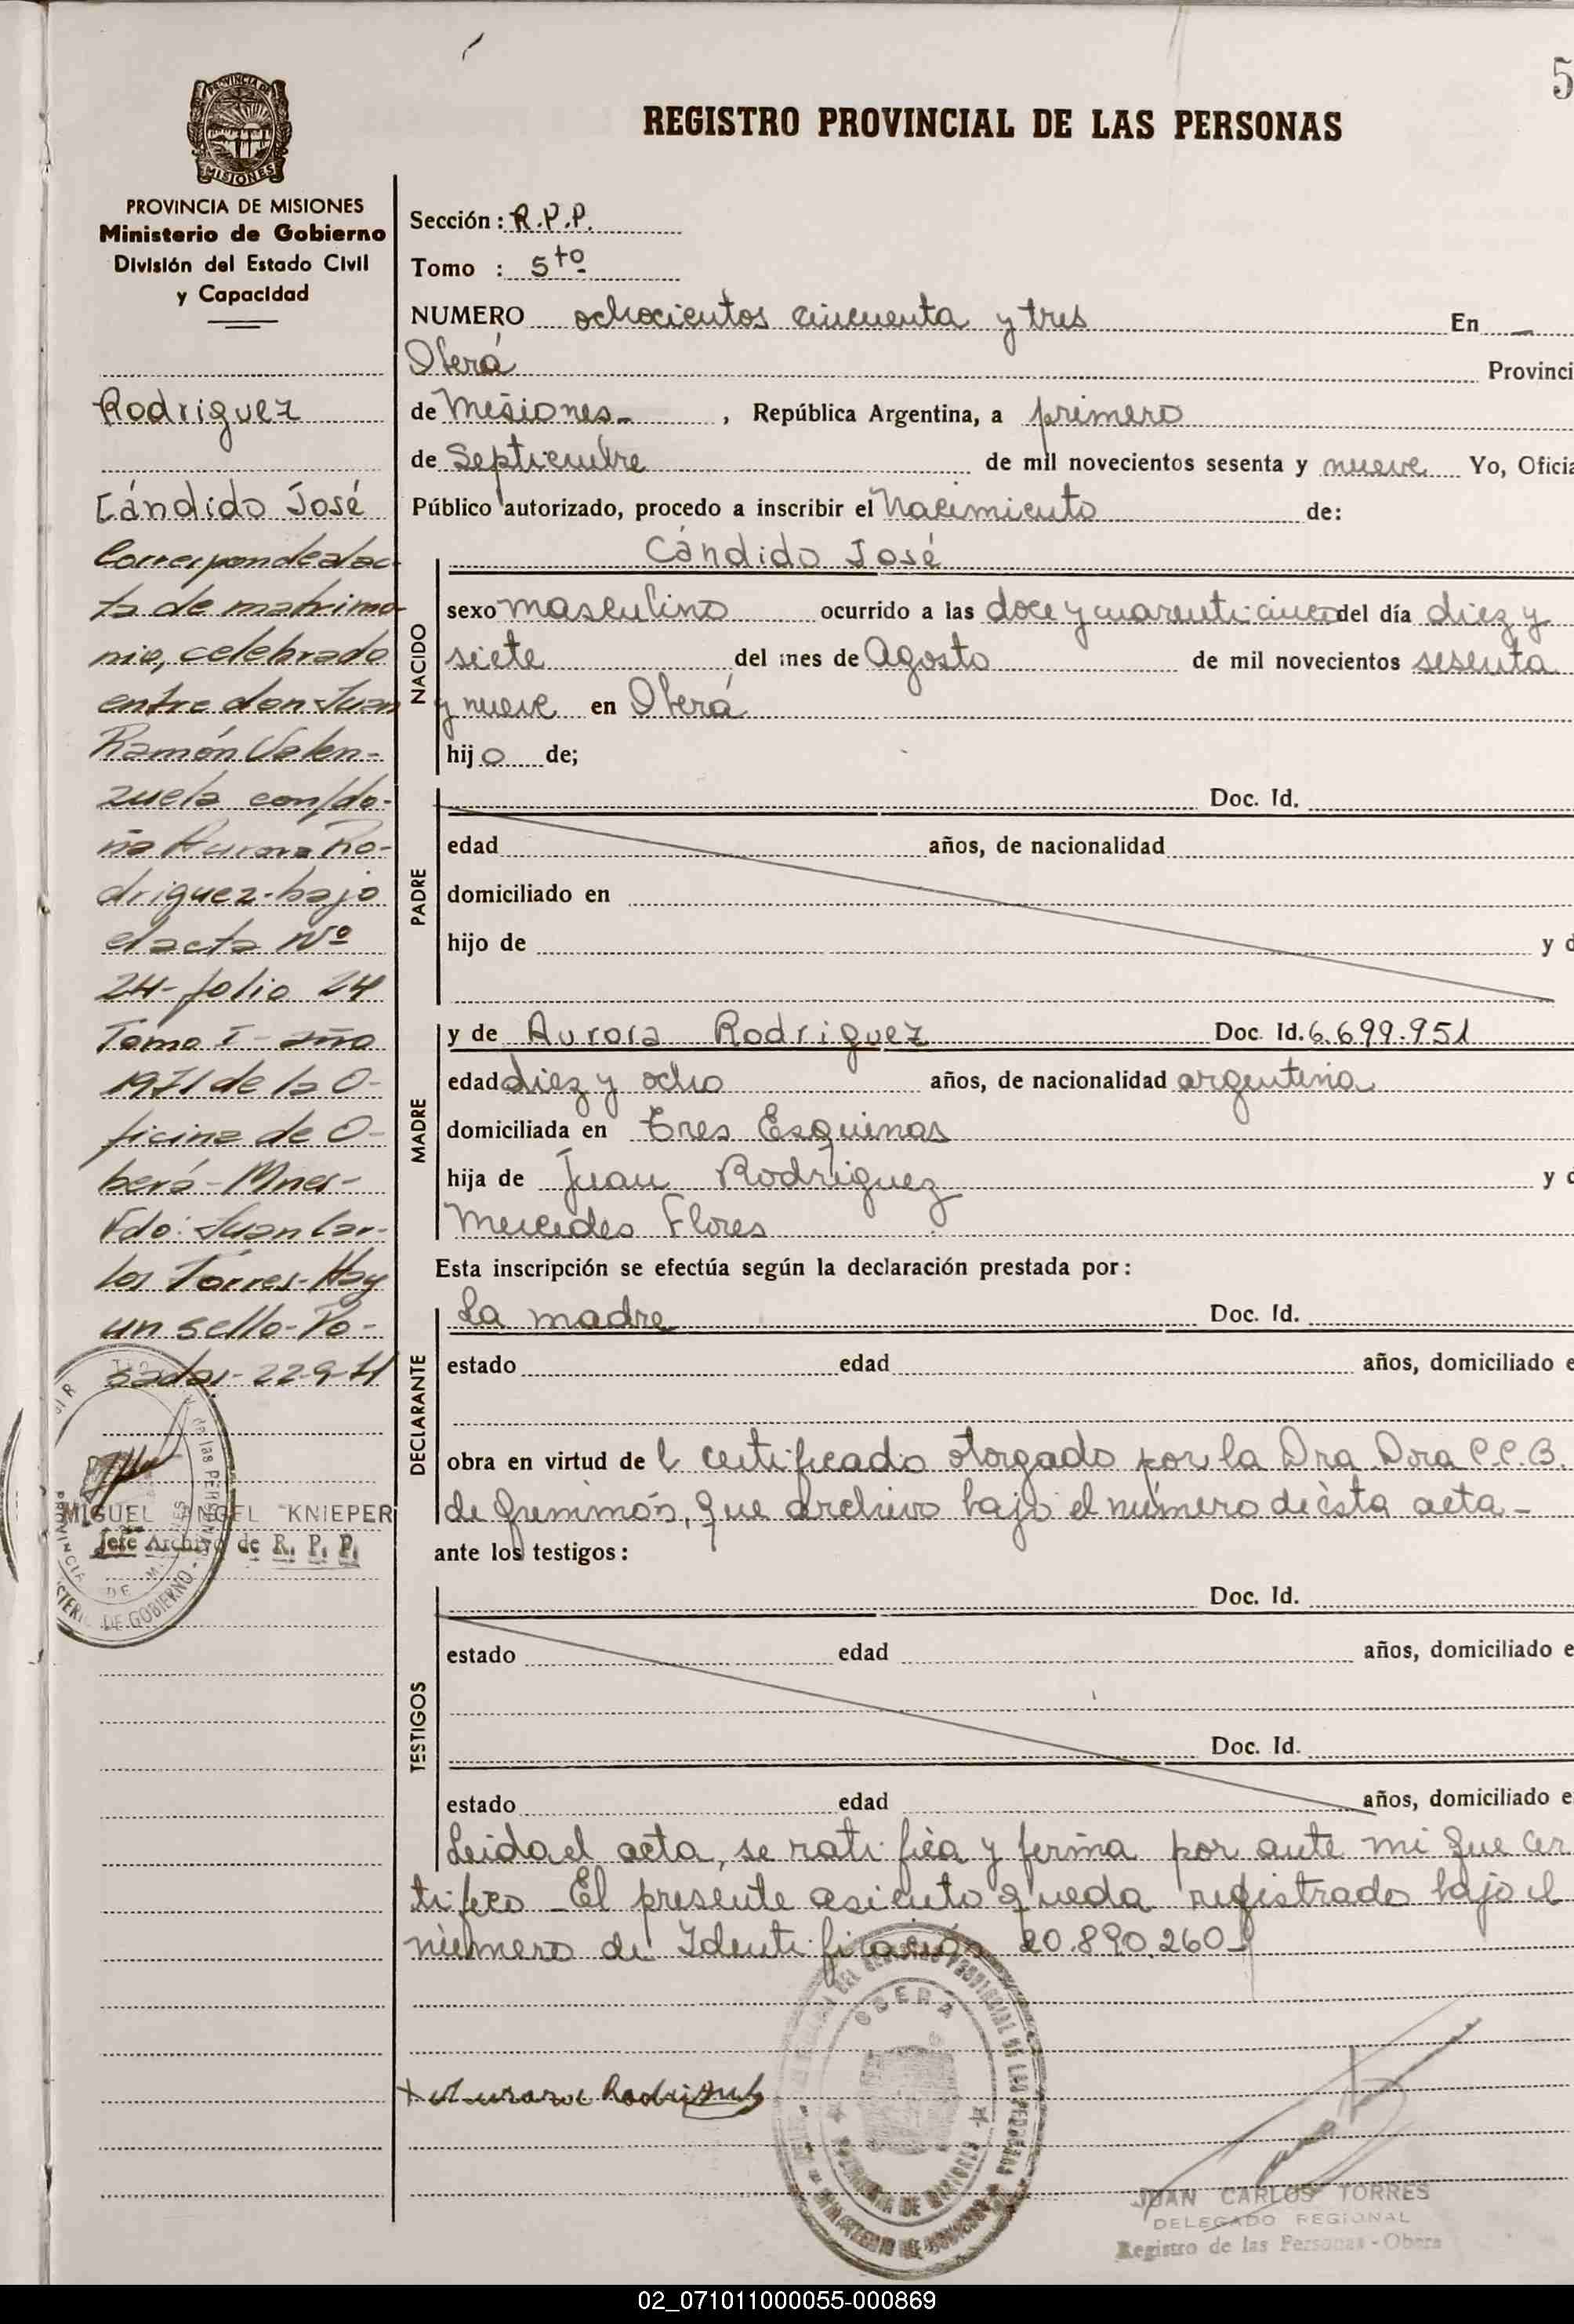 5
REGISTRO PROVINCIAL DE LAS PERSONAS
PROVINCIA DE
MISIONES
PROVINCIA DE MISIONES
Ministerio de Gobierno
División del Estado Civil
y Capacidad
Rodriguez
Cándido José
Corresponde al ac-
ta de matrimo-
nio, celebrado
entre don Juan
Ramón Valen-
zuela con/do-
ña Aurora Ro-
driguez-bajo
el acta Nº
24-folio 24
Tomo I-año
1971 de la O-
ficina de O-
berá-Mnes-
Fdo: Juan Car-
los Torres-Hay
un sello-Po-
sadas-22-9-71
MIGUEL ANGEL KNIEPER
Jefe Archivo de R. P. P.
Sección: R.P.P.
Tomo : 5to
NUMERO ochocientos cincuenta y tres En
Oberá Provinci
de Misiones , República Argentina, a primero
de Septiembre de mil novecientos sesenta y nueve Yo, Oficia
Público autorizado, procedo a inscribir el Nacimiento de:
NACIDO
Cándido José
sexo masculino ocurrido a las doce y cuarenticinco del día diez y
siete del mes de Agosto de mil novecientos sesenta
y nueve en Oberá
hijo de;
PADRE
Doc. Id.
edad años, de nacionalidad
domiciliado en
hijo de y d
MADRE
y de Aurora Rodriguez Doc. Id. 6.699.951
edad diez y ocho años, de nacionalidad argentina
domiciliada en Tres Esquinas
hija de Juan Rodriguez y d
Mercedes Flores
Esta inscripción se efectúa según la declaración prestada por:
DECLARANTE
La madre Doc. Id.
estado edad años, domiciliado e
obra en virtud de l certificado otorgado por la Dra Dora C.C.B.
de que archivo bajo el número de ésta acta-
ante los testigos:
TESTIGOS
Doc. Id.
estado edad años, domiciliado e
Doc. Id.
estado edad años, domiciliado e
Leida el acta, se ratifica y firma por ante mi que cer
tifico - El presente asiento queda registrado bajo el
número de Identificación 20.890.260-
Rodriguez
OBERA
JUAN CARLOS TORRES
DELEGADO REGIONAL
Registro de las Personas - Obera
02_071011000055-000869